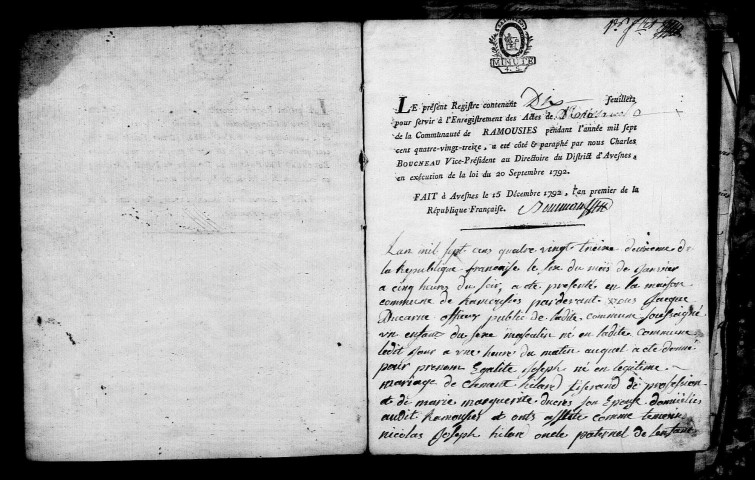 MINUTE
LE présent Registre contenant Dix feuillets
pour servir à l'Enregistrement des Actes de Naissance
de la Communauté de RAMOUSIES pendant l'année mil sept
cent quatre-vingt-treize, a eté côté & paraphé par nous Charles
BOUGNEAU Vice-Président au Directoire du District d'Avesnes,
en exécution de la loi du 20 Septembre 1792.
FAIT à Avesnes le 15 Décembre 1792, l'an premier de la
République Française.
Lan mil sept cens quatre vingt treize deuxieme de
la republique francaise le six du mois de Janvier
a cinq heures du soir, a ete presenté en la maison
commune de Ramousies pardevant nous Jacque
Ducarne officier public de ladite commune soussigné
un enfant du sexe masculin né en ladite commune
ledit jour a une heure du matin auquel a ete donné
pour prenom Egalité Joseph né en legitime
mariage de Clement hilard tisserand de profession
et de marie marguerite ducrès son Epouse domiciliés
audit Ramousies et onts assisté comme temoins
nicolas Joseph hilare oncle paternel de lenfant